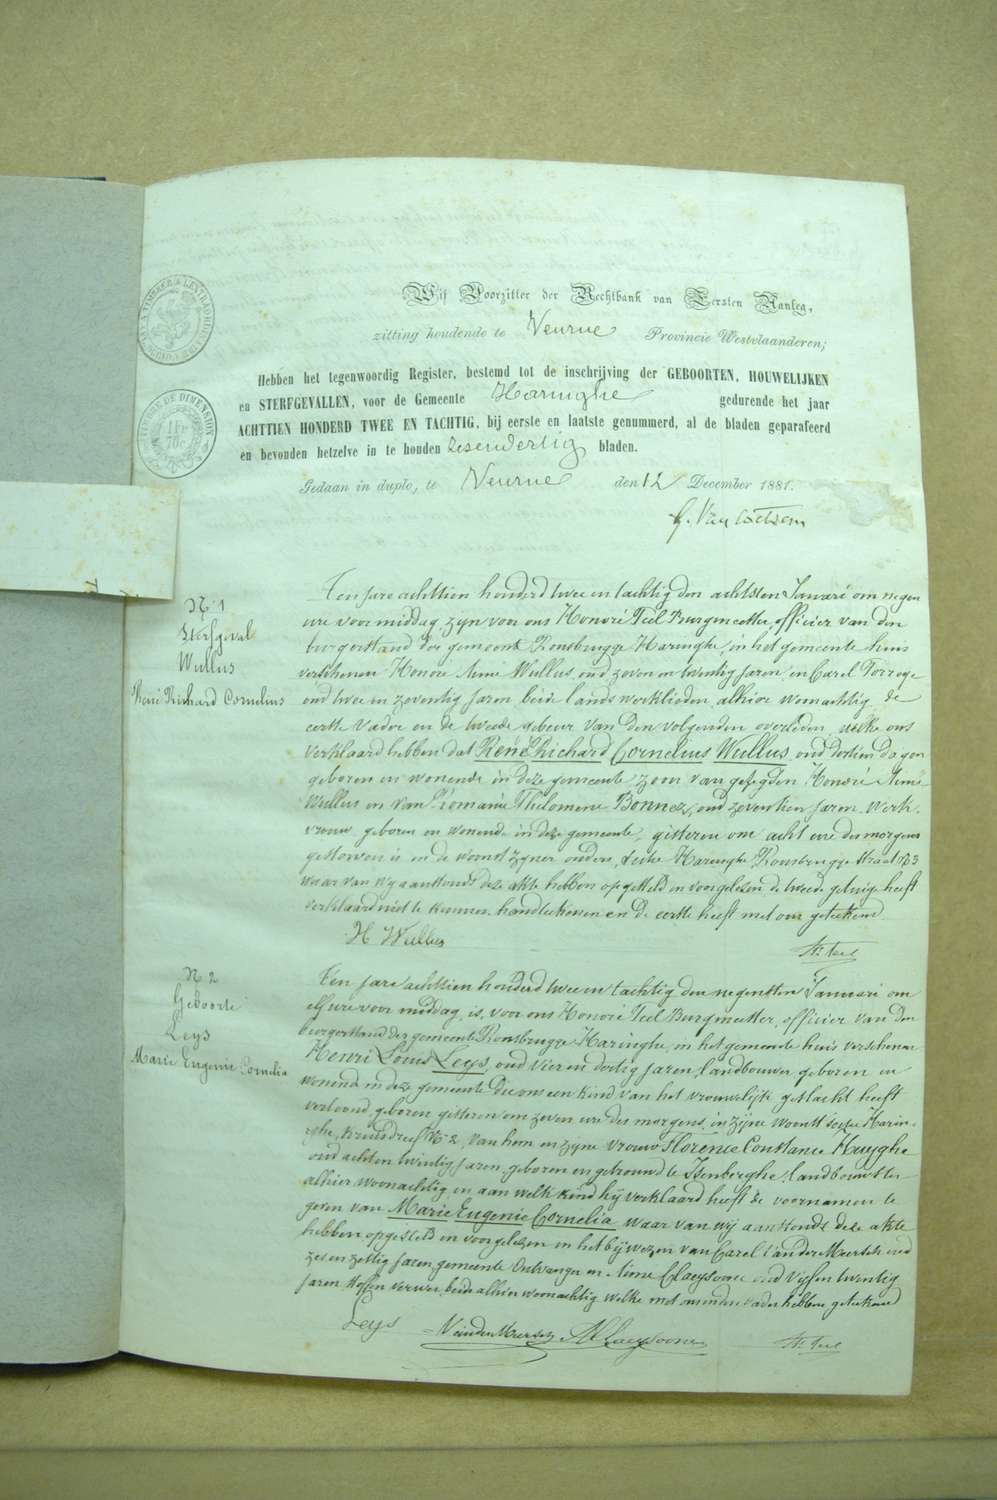 Wij Voorzitter der Rechtbank van Eersten Aanleg,
zitting houdende te Veurne Provincie Westvlaanderen;
Hebben het tegenwoordig Register, bestemd tot de inschrijving der GEBOORTEN, HOUWELIJKEN
en STERFGEVALLEN, voor de Gemeente Haringhe gedurende het jaar
ACHTTIEN HONDERD TWEE EN TACHTIG, bij eerste en laatste genummerd, al de bladen geparafeerd
en bevonden hetzelve in te houden zesendertig bladen.
Gedaan in duplo, te Veurne den 12 December 1881.
N. 1
Sterfgeval
Wullus
René Richard Cornelius
Ten jare achttien honderd twee en tachtig den achtsten Januari om negen
ure voor middag, zyn voor ons Honoré Teel Burgmeester, officier van den
burgerstand der gemeente Rousbrugge Haringhe, in het gemeente huis
verschenen Honoré Aimé Wullus, oud zeven en twintig jaren, en Carel Torreye
oud twee en zeventig jaren beide lands werklieden alhier woonachtig, de
eerste Vader en de tweede gebuur van den volgenden overleden, welke ons
verklaard hebben dat René Richard Cornelius Wullus, oud dertien dagen
geboren en wonende in deze gemeente, zoon van gezegden Honoré Aimé
Wullus en van Romanie Philomene Bonnez, oud zeventien jaren, werk-
vrouw, geboren en wonende in deze gemeente, gisteren om acht ure des morgens
gestorven is en de woonst zyner ouders, sectie Haringhe Rousbrugge straat N 3
waar van wy aanstonds deze akte hebben opgesteld en voorgelezen, de tweede getuige heeft
verklaard niet te kunnen handteekenen en de eerste heeft met ons geteekend
H Wullus
H. Teel
N 2
Geboorte
Leys
Marie Eugenie Cornelia
Ten jare achttien honderd twee en tachtig den negensten Januari om
elf ure voor middag, is voor ons Honoré Teel Burgmeester, officier van den
burgerstand der gemeente Rousbrugge Haringhe, in het gemeente huis verschenen
Henri Louis Leys, oud vier en dertig jaren, landbouwer geboren en
wonende in deze gemeente Die ons een kind van het vrouwelijk geslacht heeft
vertoond, geboren gisteren om zeven ure des morgens, in zijne woonst sectie Harin-
ghe, N 2, van hem en zijne vrouw Florence Constance Huyghe
oud acht en twintig jaren, geboren en getrouwd te Isenberghe, landbouwster
alhier woonachtig en aan welk kind hij verklaard heeft de voornamen te
geven van Marie Eugenie Cornelia waar van wij aanstonds deze akte
hebben opgesteld en voorgelezen in het bijwezen van Carel Van der Meersch oud
zes en zestig jaren, gemeente Ontvanger en Aimé Claeysoone oud vijf en twintig
jaren verwer, beide alhier woonachtig welke met ons en den vader hebben geteekend
Leys VanderMeersch A Claeysoone H. Teel